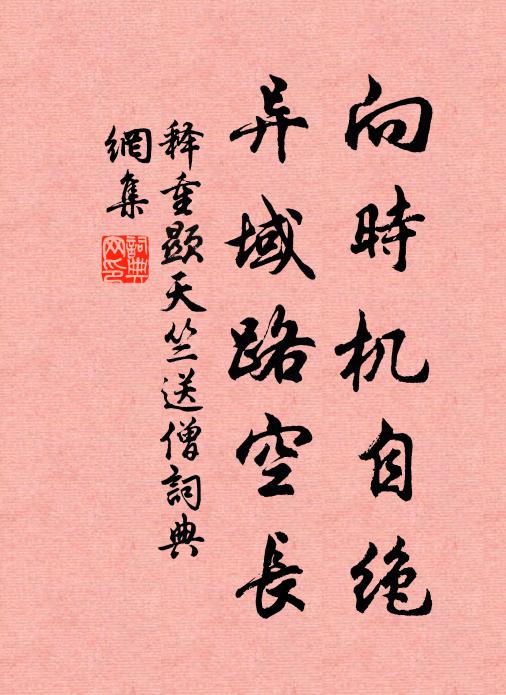 向時机自绝
异域路空長
释重顯天竺送僧詞典
網集
詞典
网印